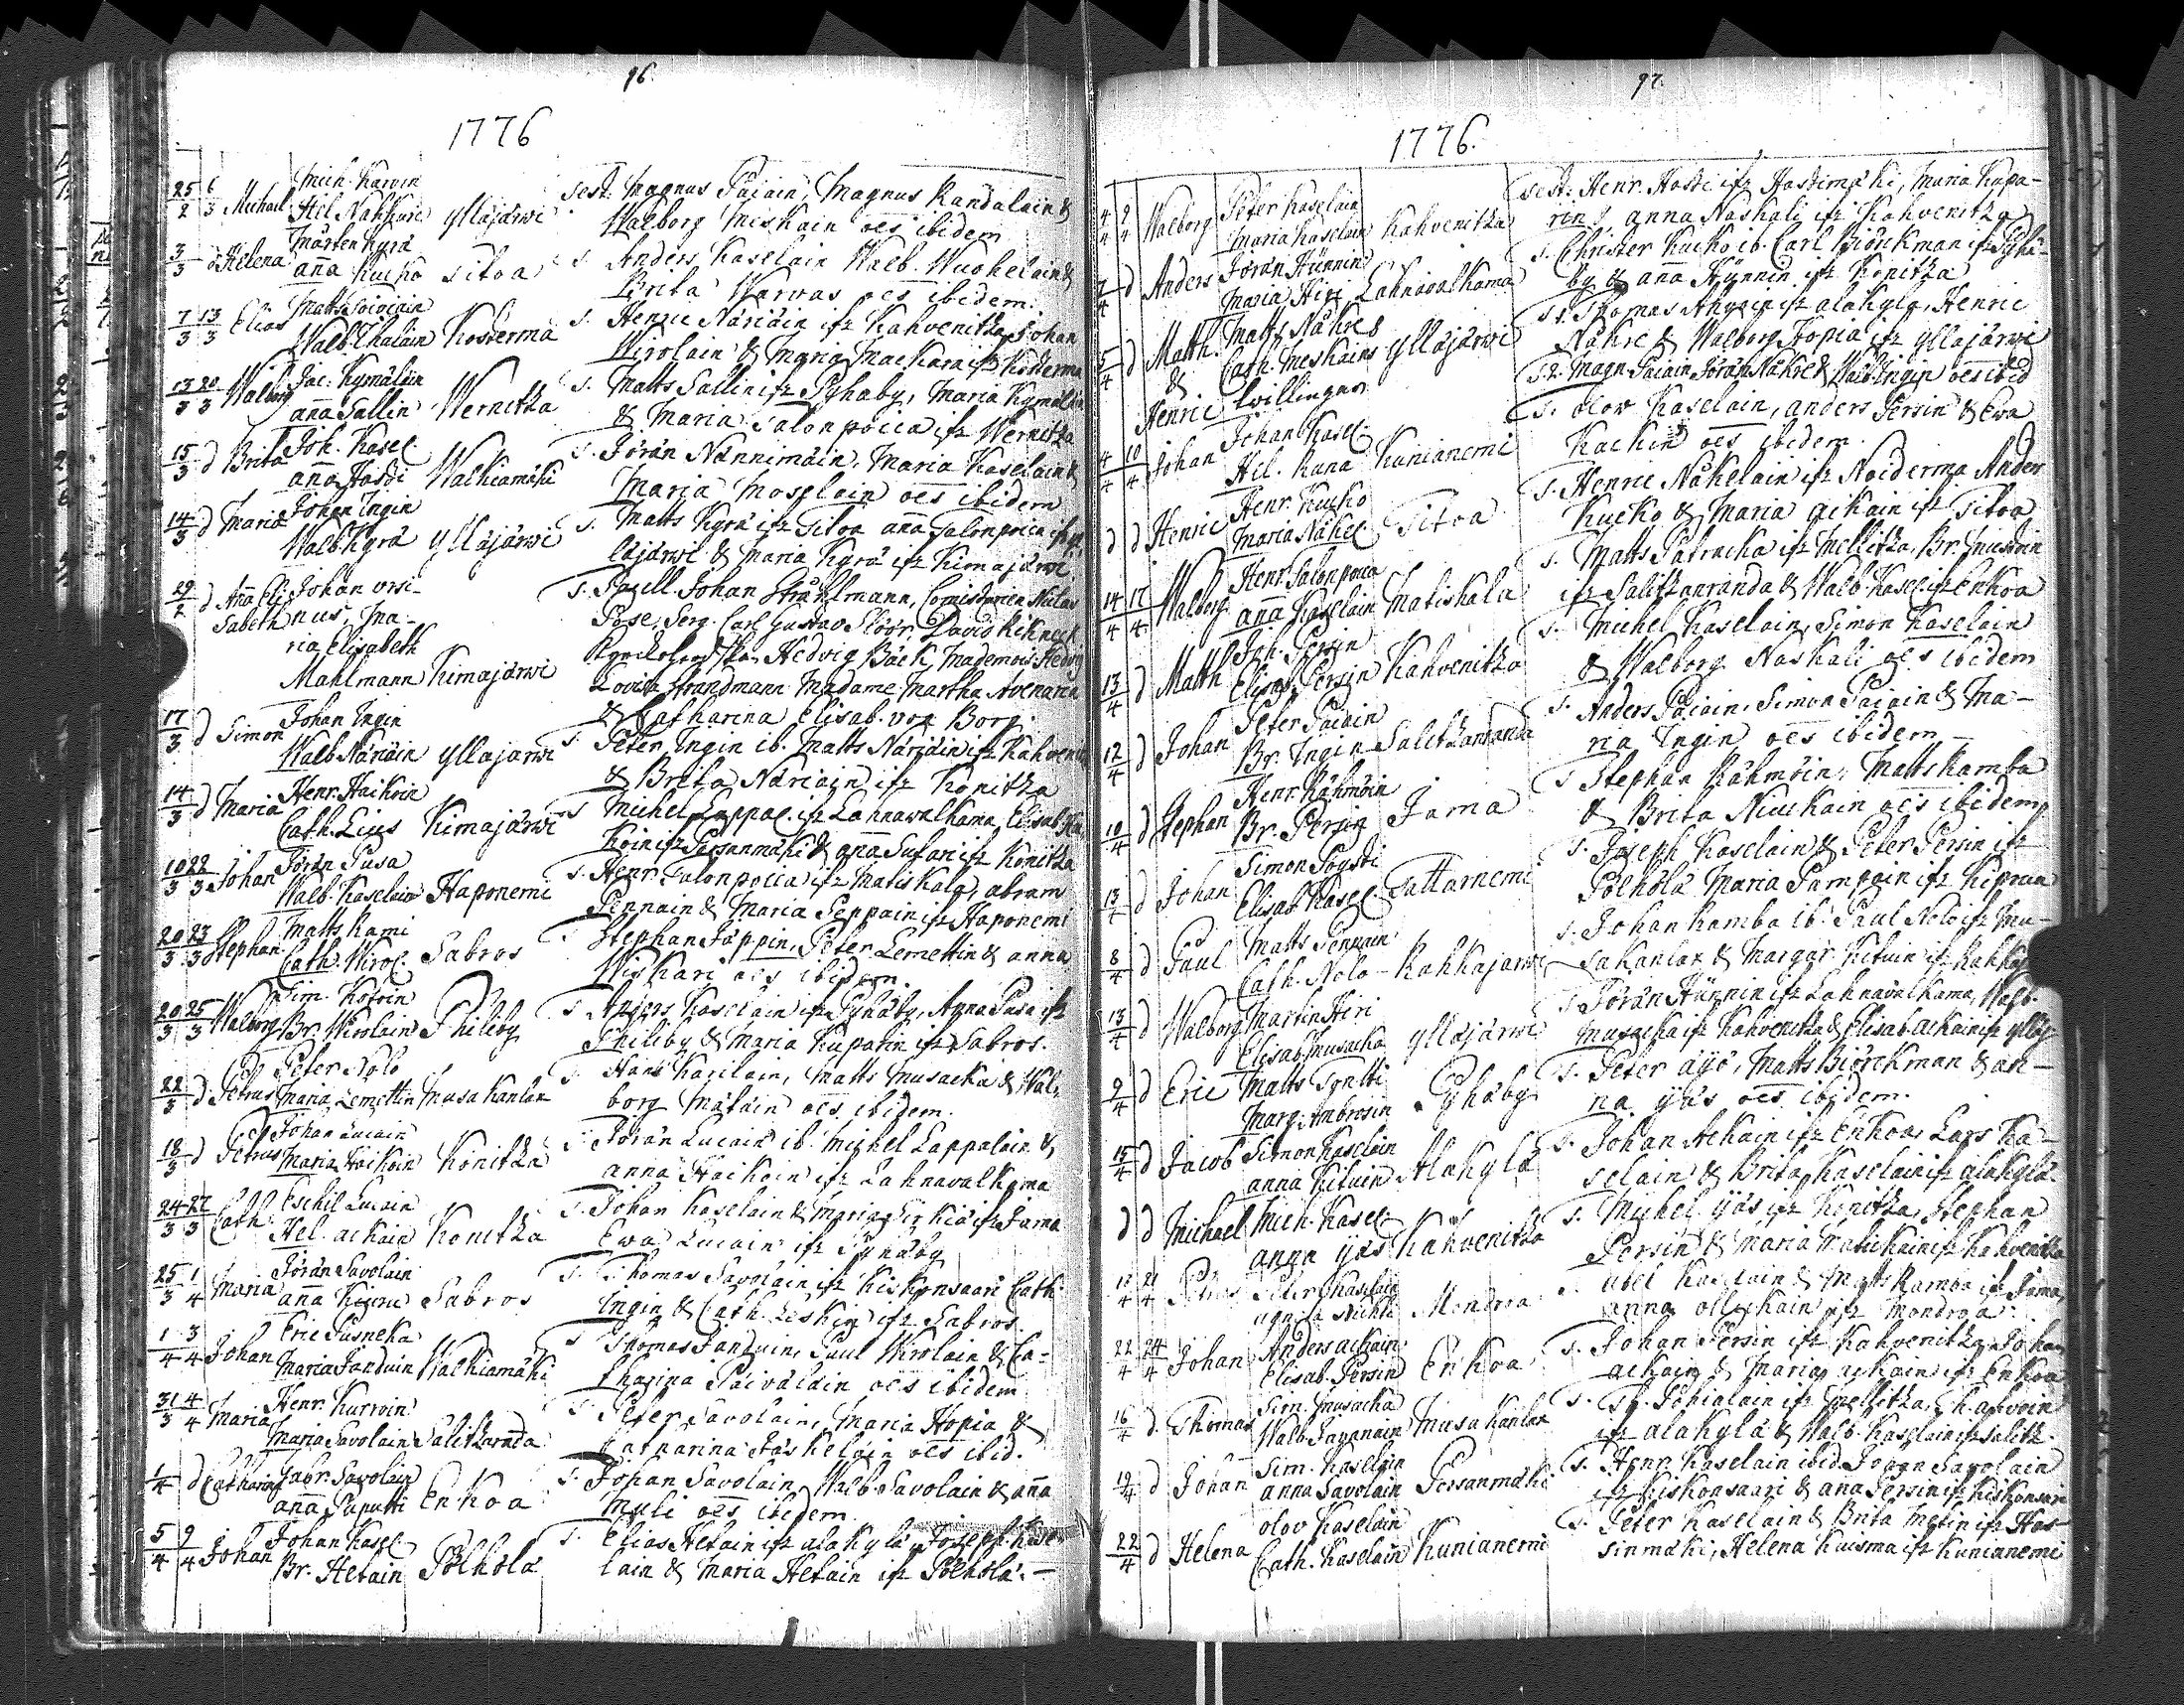 96.
1776
25/2 6/3 Michael Mich. Karvin Hel. Nakkari Ylläjärwi Test. Magnus Päiäin, Magnus Randalain &
Walborg Miskain oes ibidem
3/3 d Helena Mårten Kyrä aña Kucko Sitoa S. Anders Kaselain Walb. Wuohelain &
Brita Warwas oes ibidem.
7/3 13/3 Elias Matts Walb. Ihalain Kosterma S. Henric Näriäin ifr. Kahvenitza Johan
Wirolain & Maria Mackara ifr. Kosterma
13/3 20/3 Walborg Jac. Kymäläin aña Sallin Wernitza S. Matts Sallin ifr. Pyhäby, Maria Kymäläin
& Maria Salonpoica ifr. Wernitza
15/3 d Brita Joh. Kasel. aña Hosti Walkiamäki S. Jörän Nännimäin, Maria Kaselain &
Maria oes ibidem
14/3 d Maria Johan Ingin Walb. Kyrä Ylläjärwi S. Matts Kyrä ifr. Sitoa aña Salonpoica ifr. Yl-
läjärwi & Maria Kyrä ifr. Kimajärwi
29/2 d Aña Eli- Johan Ursi- S. Johan Stråhlmann,
sabeth nus, Ma- Pose, Serg. Carl Gustav Slöör, David
ria Elisabeth Hedvig Bäck, Mademois. Hedvig
Mahlmann Kimajärwi Lovisa Strandmann Madame Martha Avenaria
& Catharina Elisab. von Borg.
17/3 d Simon Johan Ingin Walb. Näriäin Ylläjärwi S. Peter Ingin ib. Matts Näriäin ifr. Kahvenitza
& Brita Näriäin ifr. Konitza
14/3 d Maria Henr. Haikoin Cath. Kimajärwi S. Michel Lappal. ifr. Lahnavalkama Elisab. Hai-
koin ifr. Persanmäki & aña Sufari ifr. Konitza
10/3 22/3 Johan Jörän Pusa Walb. Kaselain Haponemi S. Henr. Salonpoica ifr. Matiskala, abram
Pennain & Maria Seppain ifr. Haponemi
20/3 23/3 Stephan Matts Rami Cath. Wirol. Sabros S. Stephan Jäppin, Peter Lemettin & anna
Wiskari oes ibidem.
20/3 25/3 Walborg Sim. Kotroin Br. Wirolain Philiby S. Anders Kaselain ifr. Pyhäby, Anna Pusa ifr.
Philiby & Maria Kuparin ifr. Sabros.
22/3 d Petrus Peter Nolo Maria Lemettin Musakanlax S. Hans Karilain, Matts Musacka & Wal-
borg Mätäin oes ibidem.
18/3 d Petrus Johan Lucain Maria Haikoin Konitza S. Jörän Lucain ib. Michel Lappalain &
anna Haikoin ifr. Lahnavalkama
24/3 27/3 Cath. Eschil Lucain Hel. ackain Konitza S. Johan Kaselain & Maria Sirkiä ifr. Jama
Ewa Lucain ifr. Pyhäby
25/3 1/4 Maria Jörän Savolain aña Kiuru Sabros S. Thomas Savolain ifr. Kiskonsaari Cath.
Ingin & Cath. Leskin ifr. Sabros.
1/4 3/4 Johan Eric Pusneka Maria Janduin Walkiamäki S. Thomas Janduin, Paul Wirolain & Ca-
tharina Päiväläin oes ibidem
31/3 4/4 Maria Henr. Kurwin Maria Savolain Salitzaranda S. Peter Savolain, Maria Hopia &
Catharina Jäskeläin oes ibid.
1/4 d Catharina Gabr. Savolain aña Paputti Enkoa S. Johan Savolain, Walb. Savolain & aña
Muli oes ibidem.
5/4 9/4 Johan Johan Kasel. Br. Hetain Pölhölä S. Elias Hetain ifr. alakylä, Joseph Kase-
lain & Maria Hetain ifr. Pölhölä.
97.
1776.
4/4 9/4 Walborg Peter Kaselain Maria Kaselain Kahvenitza Test: Henr. Hosti ifr. Hostimäki, Maria Kupa-
rin & anna Naskali ifr. Kahvenitza
7/4 d Anders Jörän Hünnin Maria Hiri Lahnavalkama S. Christer Kucko ib. Carl Biörckman ifr. Pyhä-
by & aña Hünnin ifr. Konitza
5/4 d Matth. Matts Näkre & Cath. Meskain Ylläjärwi S. 1. Thomas ifr. alakyla, Henric
Näkre & Walborg Hopia ifr. Ylläjärwi
& Henric twillingar S. 2. Magn. Päiäin Jörän Näkre & Walb. Ingin oes ibid
4/4 10/4 Johan Johan Kasel. Hel. Kuna Kunianemi S. Olov Kaselain, anders Persin & Ewa
Kackin oes ibidem.
d d Henric Henr. Kucko Maria Näkel. Sitoa S. Henric Näkelain ifr. Noiderma Anders
Kucko & Maria ackain ifr. Sitoa
14/4 17/4 Walborg Henr. Salonpoica aña Kaselain Matiskala S. Matts Patracka ifr. Mellitza, Br.
ifr. Salitzanranda & Walb. Kasel. ifr. Enkoa
13/4 d Matth Joh. Persin Elisab. Persin Kahvenitza S. Michel Kaselain, Simon Kaselain
& Walborg Naskali oes ibidem
12/4 d Johan Peter Päiäin Br. Ingin Salitzanranda S. Anders Päiäin, Simon Päiäin & Ma-
ria Ingin oes ibidem
10/4 d Stephan Henr. Rähmöin Br. Persin Jama S. Stephan Rähmöin, Matts Kamba
& Brita Niuckain oes ibidem
13/4 d Johan Simon Poysti Elisab. Kasel. Tattarnemi S. Joseph Kaselain & Peter Persin ifr.
Pölhölä Maria Pumpain ifr. Kiprua
8/4 d Paul Matts Pennain Cath. Nolo Kahkajärwi S. Johan Kamba ib. Paul Nolo ifr. Mu-
sakanlax & Margar. Kituin ifr. Kahkaj.
13/4 d Walborg Martin Hiri Elisab. Musacka Ylläjärwi S. Jörän Hünnin ifr. Lahnavalkama, Walb.
Musacka ifr. Kahvenitza & Elisab. ackain ifr. Ylläj.
9/4 d Eric Matts Marg. Ambrosin Pyhäby S. Peter äyö, Matts Biörckman & an-
na yäs oes ibidem.
15/4 d Jacob Simon Kaselain anna Kituin Alakylä S. Johan Ackain ifr. Enkoa Lars Ka-
selain & Brita Kaselain ifr. alakylä.
d d Michael Mich. Kasel. anna yäs Kahvenitza S. Michel yäs ifr. Konitza, Stephan
Persin & Maria Matickain ifr. Kahvenitza
12/4 21/4 Petrus Peter Kaselain Mondroa S. abel Kaselain & Matts Kamba ifr. Jama,
anna ollickain ifr. Mondroa.
22/4 24/4 Johan Anders ackain Elisab. Persin Enkoa S. Johan Persin ifr. Kahvenitza, Johan
ackain & Maria ackain ifr. Enkoa
16/4 d Thomas Sim. Musacka Walb. Musakanlax S. Th. Pohialain ifr. Mellitza,
ifr. alakylä & Walb. Kaselain ifr. Salitz.
19/4 d Johan Sim. Kaselain anna Savolain Persanmäki S. Henr. Kaselain ibid. Jöran Savolain
ifr. Kiskonsaari & ana Persin ifr. Kiskonsaari
22/4 d Helena olov Kaselain Cath. Kaselain Kunianemi S. Peter Kaselain & Brita Metin ifr. Has-
sinmäki, Helena Kuisma ifr. Kunianemi